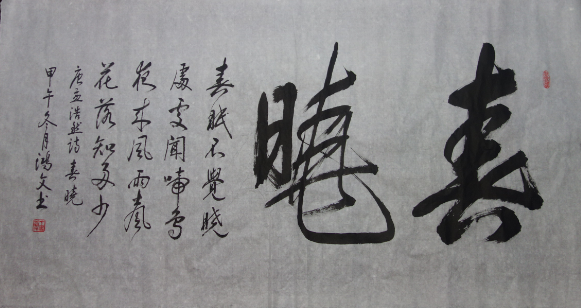 春曉
春眠不覺曉
處處聞啼鸟
夜来風雨聲
花落知多少
唐孟浩然诗春曉
甲午冬月鴻文书